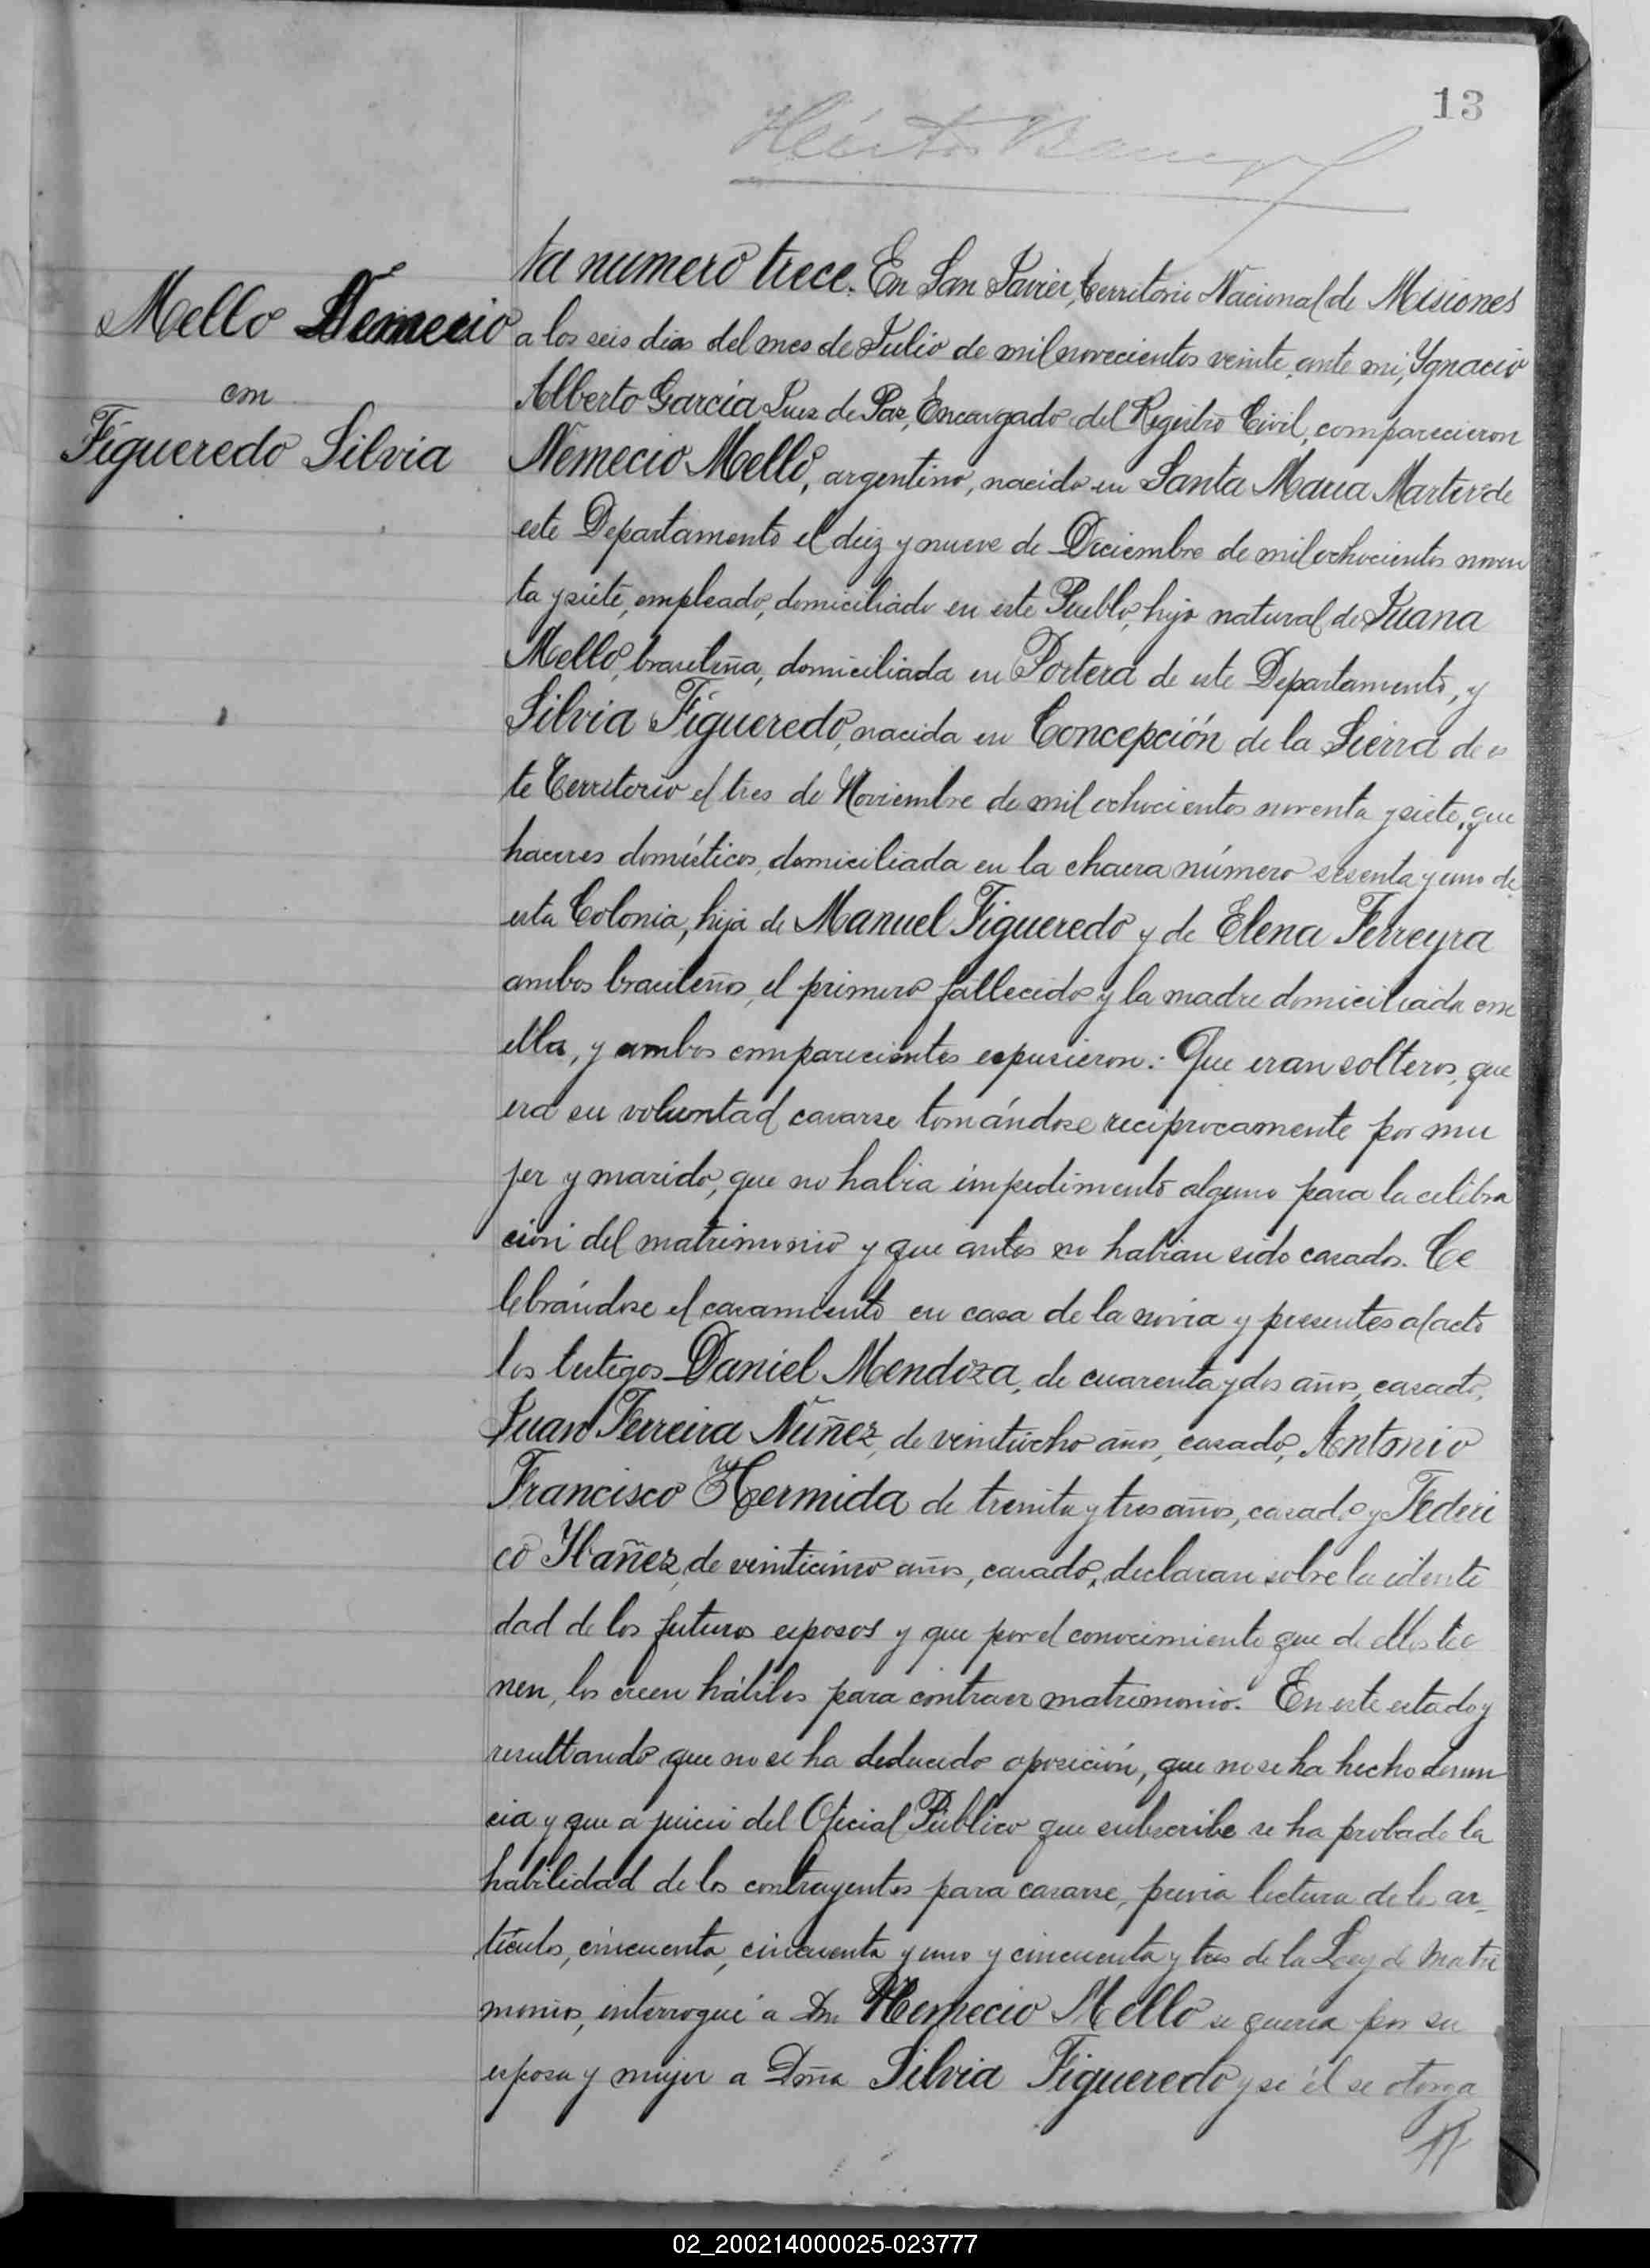 13
Mello Nemecio
con
Figueredo Silvia
ta numero trece. En San Javier, Territorio Nacional de Misiones
a los seis dias del mes de Julio de mil novecientos veinte, ante mi, Ygnacio
Alberto García Juez de Paz, Encargado del Registro Civil, comparecieron
Nemecio Mello, argentino, nacido en Santa Maria Martir de
este Departamento el diez y nueve de Diciembre de mil ochocientos noven
ta y siete, empleado, domiciliado en este Pueblo, hijo natural de Juana
Mello, brasileña, domiciliada en Portera de este Departamento, y
Silvia Figueredo, nacida en Concepción de la Sierra de es
te Territorio el tres de Noviembre de mil ochocientos noventa y siete, que
haceres domésticos, domiciliada en la chacra número sesenta y uno de
esta Colonia, hija de Manuel Figueredo y de Elena Ferreyra
ambos brasileños, el primero fallecido y la madre domiciliada con
ella, y ambos comparecientes espusieron: Que eran solteros, que
era su voluntad casarse tomándose reciprocamente por mu
jer y marido, que no habia impedimento alguno para la celebra
ción del matrimonio y que antes no habian sido casados. Ce
lebrándose el casamiento en casa de la novia y presentes al acto
los testigos Daniel Mendoza, de cuarenta y dos años, casado,
Juan Ferreira Núñez, de veintiocho años, casado, Antonio
Francisco Hermida de treinta y tres años, casado y Federi
co Ybañez, de veinticinco años, casado, declaran sobre la identi
dad de los futuros esposos y que por el conocimiento que de ellos tie
nen, los creen hábiles para contraer matrimonio. En este estado y
resultando que no se ha deducido oposición, que no se ha hecho denun
cia y que a juicio del Oficial Público que subscribe se ha probado la
habilidad de los contrayentes para casarse, previa lectura de los ar
tículos, cincuenta, cincuenta y uno y cincuenta y tres de la Ley de Matri
monios, interrogué a Dn Nemecio Mello si queria por su
esposa y mujer a Dña Silvia Figueredo y si él se otorga
02_200214000025-023777